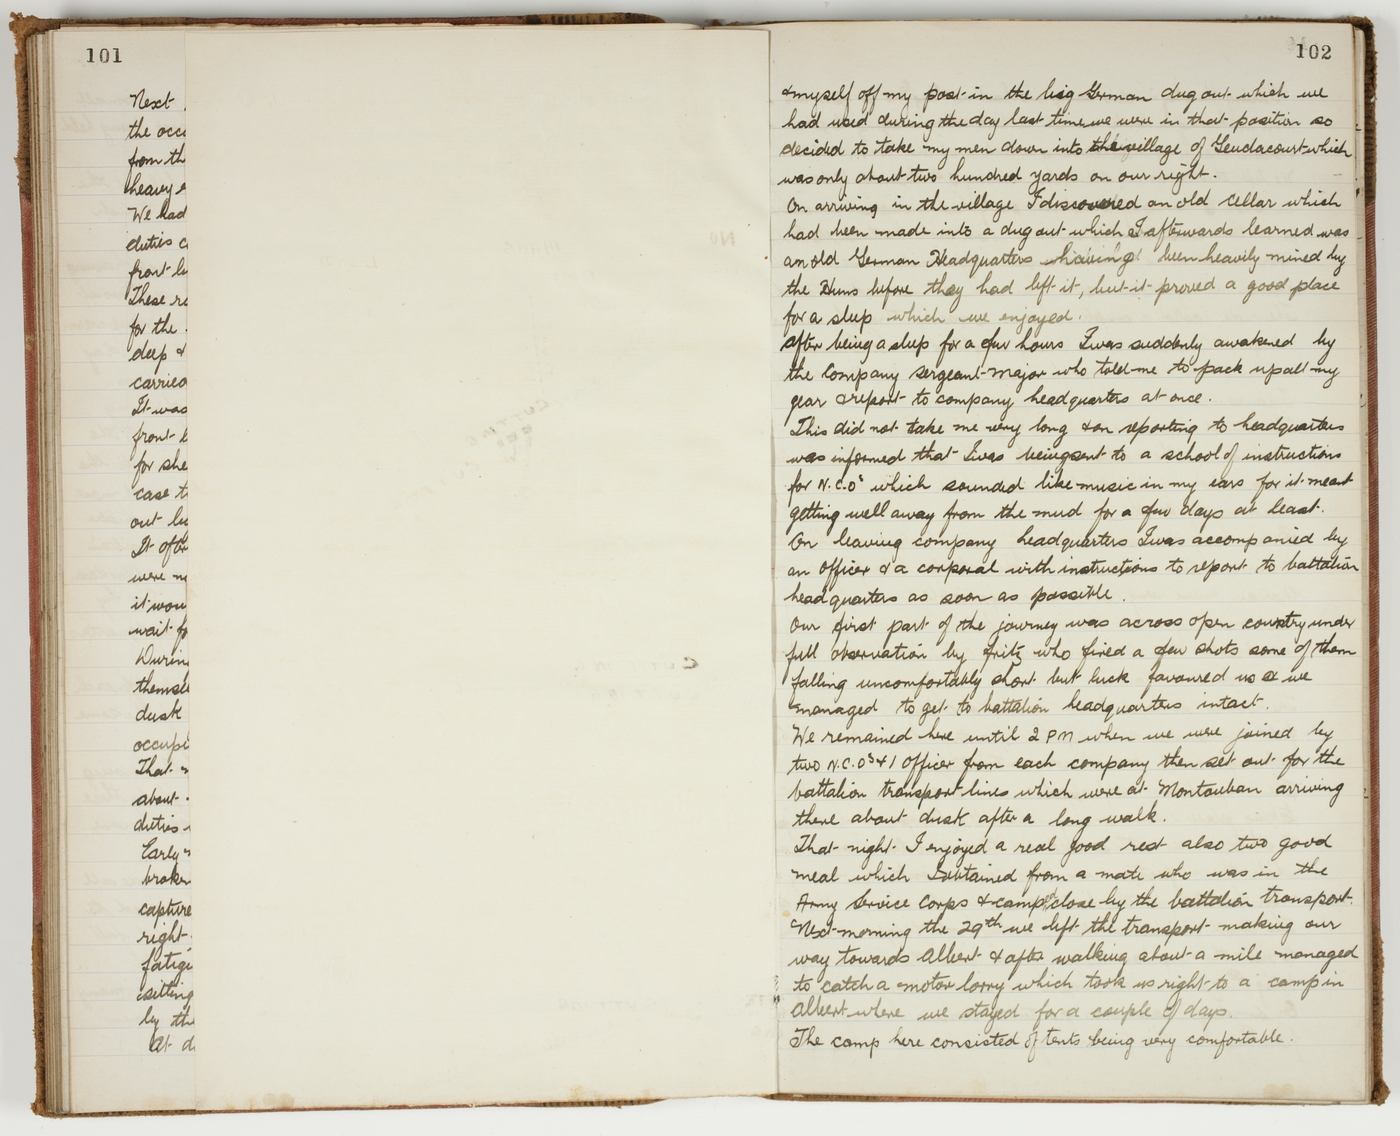 101
Next
the occ
from th
heavy
We had
duties
front
These
for the
deep &
carried
It was
front
for she
case t
out
It ofte
were
it wou
wait fo
During
themse
dusk
occupi
That
about
duties
Early
broken
capture
right
fatig
sitting
by the
At d
102
& myself off my post in the big German dug out which we
had used during the day last time we were in that position so
decided to take my men down into the village of Geudacourt which
was only about two hundred yards on our right.
On arriving in the village I discovered an old cellar which
had been made into a dug out which I afterwards learned was
an old German Headquarters having been heavily mined by
the Huns before they had left it, but it proved a good place
for a sleep which we enjoyed.
After being asleep for a few hours I was suddenly awakened by
the Company sergeant-Major who told me to pack up all my
gear & report to company headquarters at once.
This did not take me very long & on reporting to headquarters
was informed that I was being sent to a school of instructions
for N.C.Os which sounded like music in my ears for it meant
getting well away from the mud for a few days at least.
On leaving company headquarters I was accompanied by
an Officer & a corporal with instructions to report to battalion
headquarters as soon as possible.
Our first part of the journey was across open country under
full observation by fritz who fired a few shots some of them
falling uncomfortably short but luck favoured us & we
managed to get to battalion headquarters intact.
We remained here until 2 PM when we were joined by
two N.C.Os & 1 Officer from each company then set out for the
battalion transport lines which were at Montauban arriving
there about dusk after a long walk.
That night I enjoyed a real good rest also two good
meal which I obtained from a mate who was in the
Army Service Corps & camped close by the battalion transport.
Next morning the 29th we left the transport making our
way towards Albert & after walking about a mile managed
to catch a motor lorry which took us right to a camp in
Albert where we stayed for a couple of days.
The camp here consisted of tents being very comfortable.